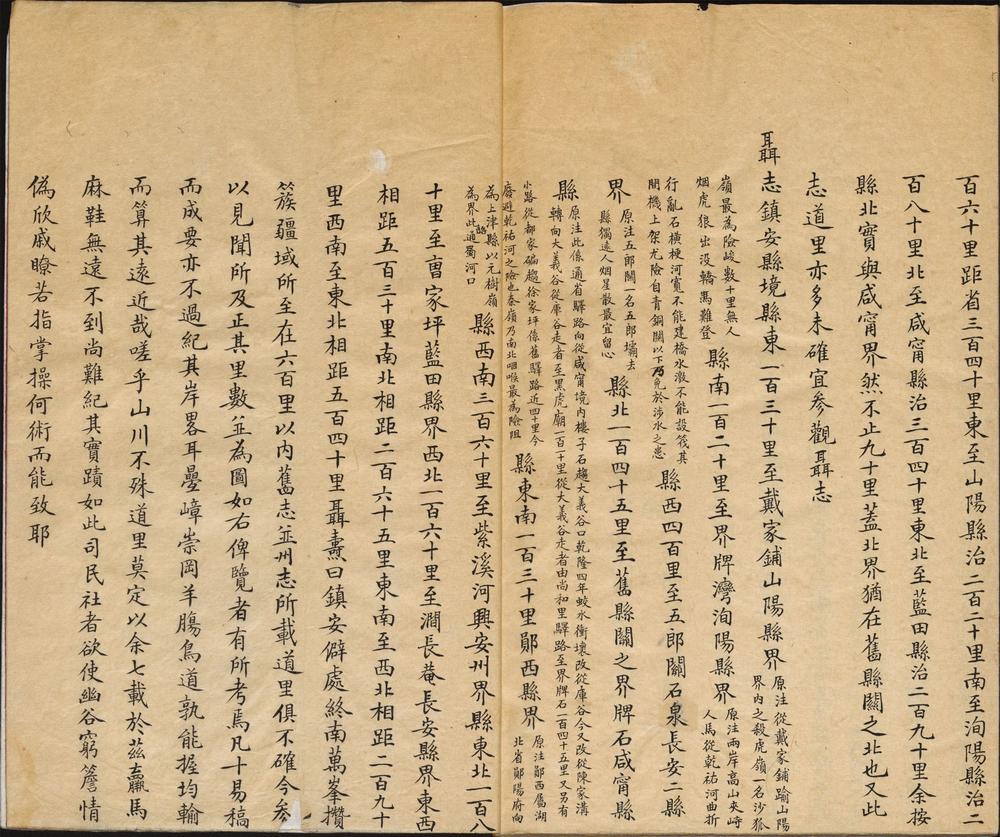 百六十里距省三百四十里東至山陽縣治二百二十里南至洵陽縣治二
百八十里北至咸甯縣治三百四十里東北至藍田縣治二百九十里余按
縣北實與咸甯界然不止九十里蓋北界猶在舊縣關之北也又此
志道里亦多未確宜參觀聶志
聶志鎮安縣境縣東一百三十里至戴家鋪山陽縣界原注從戴家鋪踰山陽界內之殺虎嶺一名沙狐
嶺最為險峻數十里無人烟虎狼出沒轎馬難登縣南一百二十里至界牌灣洵陽縣界原注兩岸高山夾峙人馬從乾祐河曲折
行亂石橫梗河寬不能建橋水漲不能設筏其間機上架尤險自青銅關以下乃免於涉水之患縣西四百里至五郎關石泉長安二縣
界原注五郎關一名五郎壩去縣獨遠人烟星散最宜留心縣北一百四十五里至舊縣關之界牌石咸甯縣
縣原注此係通省驛路向從咸甯境內樓子石趨大義谷口乾隆四年蛟水衝壞改從庫谷今又改從陳家溝轉向大義谷從庫谷走者至黑虎廟一百二十里從大義谷走者由尚和里驛路至界牌石一百四十五里又另有
小路從都家碥趨徐家坪係舊驛路近四十里今廢避乾祐河之險也秦嶺乃南北咽喉最為險阻縣東南一百三十里鄖西縣界原注鄖西屬湖北省鄖陽府向
為上津縣以元樹嶺為界此路通蜀河口縣西南三百六十里至紫溪河興安州界縣東北一百八
十里至曺家坪藍田縣界西北一百六十里至澗長菴長安縣界東西
相距五百三十里南北相距二百六十五里東南至西北相距二百九十
里西南至東北相距五百四十里聶燾曰鎮安僻處終南萬峯攢
簇疆域所至在六百里以內舊志並州志所載道里俱不確今參
以見聞所及正其里數並為圖如右俾覽者有所考焉凡十易稿
而成要亦不過紀其岸畧耳疊嶂崇岡羊腸鳥道孰能握均輸
而算其遠近哉嗟乎山川不殊道里莫定以余七載於茲羸馬
麻鞋無遠不到尚難紀其實蹟如此司民社者欲使幽谷窮簷情
偽欣戚瞭若指掌操何術而能致耶